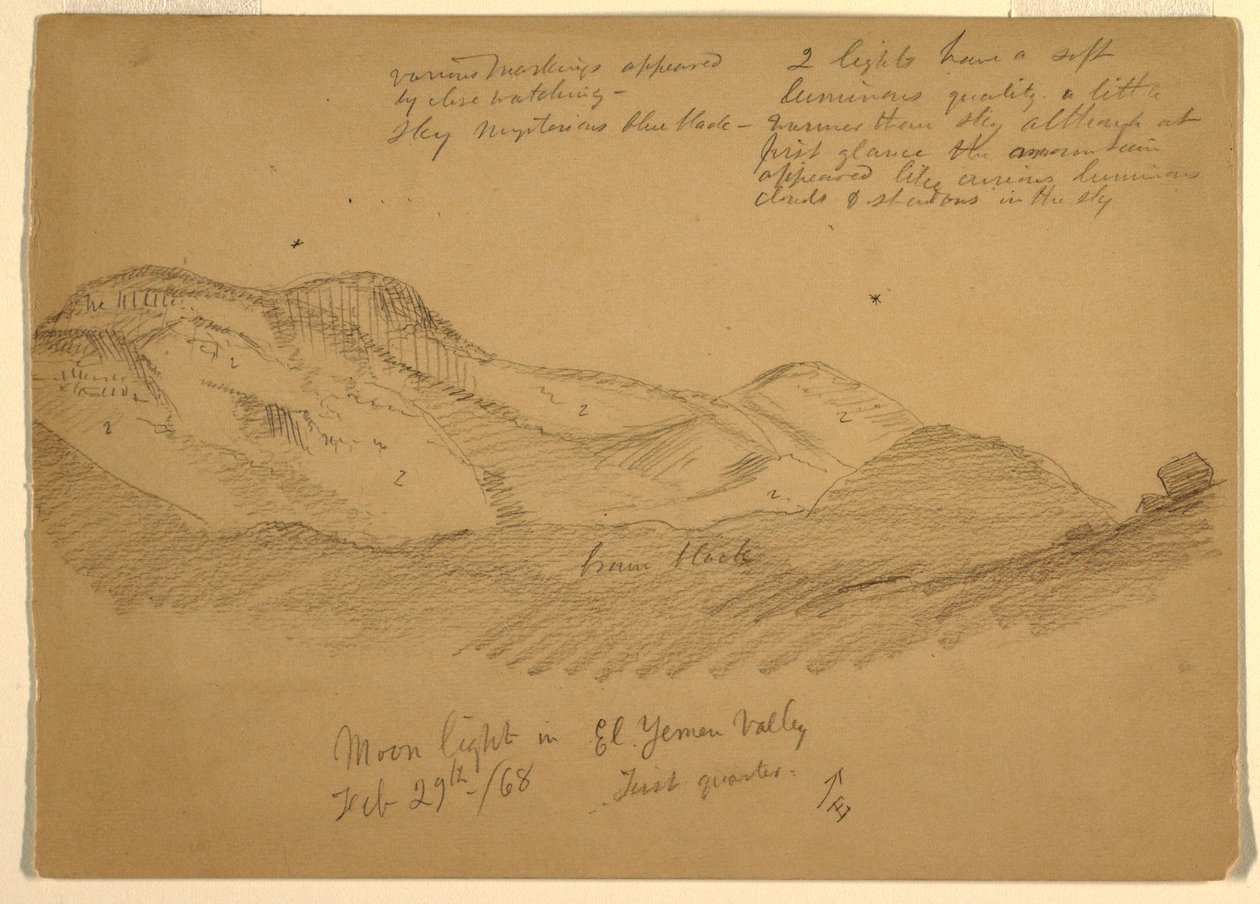 various markings appeared
by close watching -
Sky mysterious blue black -
2 lights have a soft
luminous quality. a little
warmer than sky although at
first glance the mountain
appeared like curious luminous
clouds & shadows in the sky
2
2
2
2
2
2
brown black
Moon light in El. Yemen Valley
Feb 29th /68 First quarter.
E